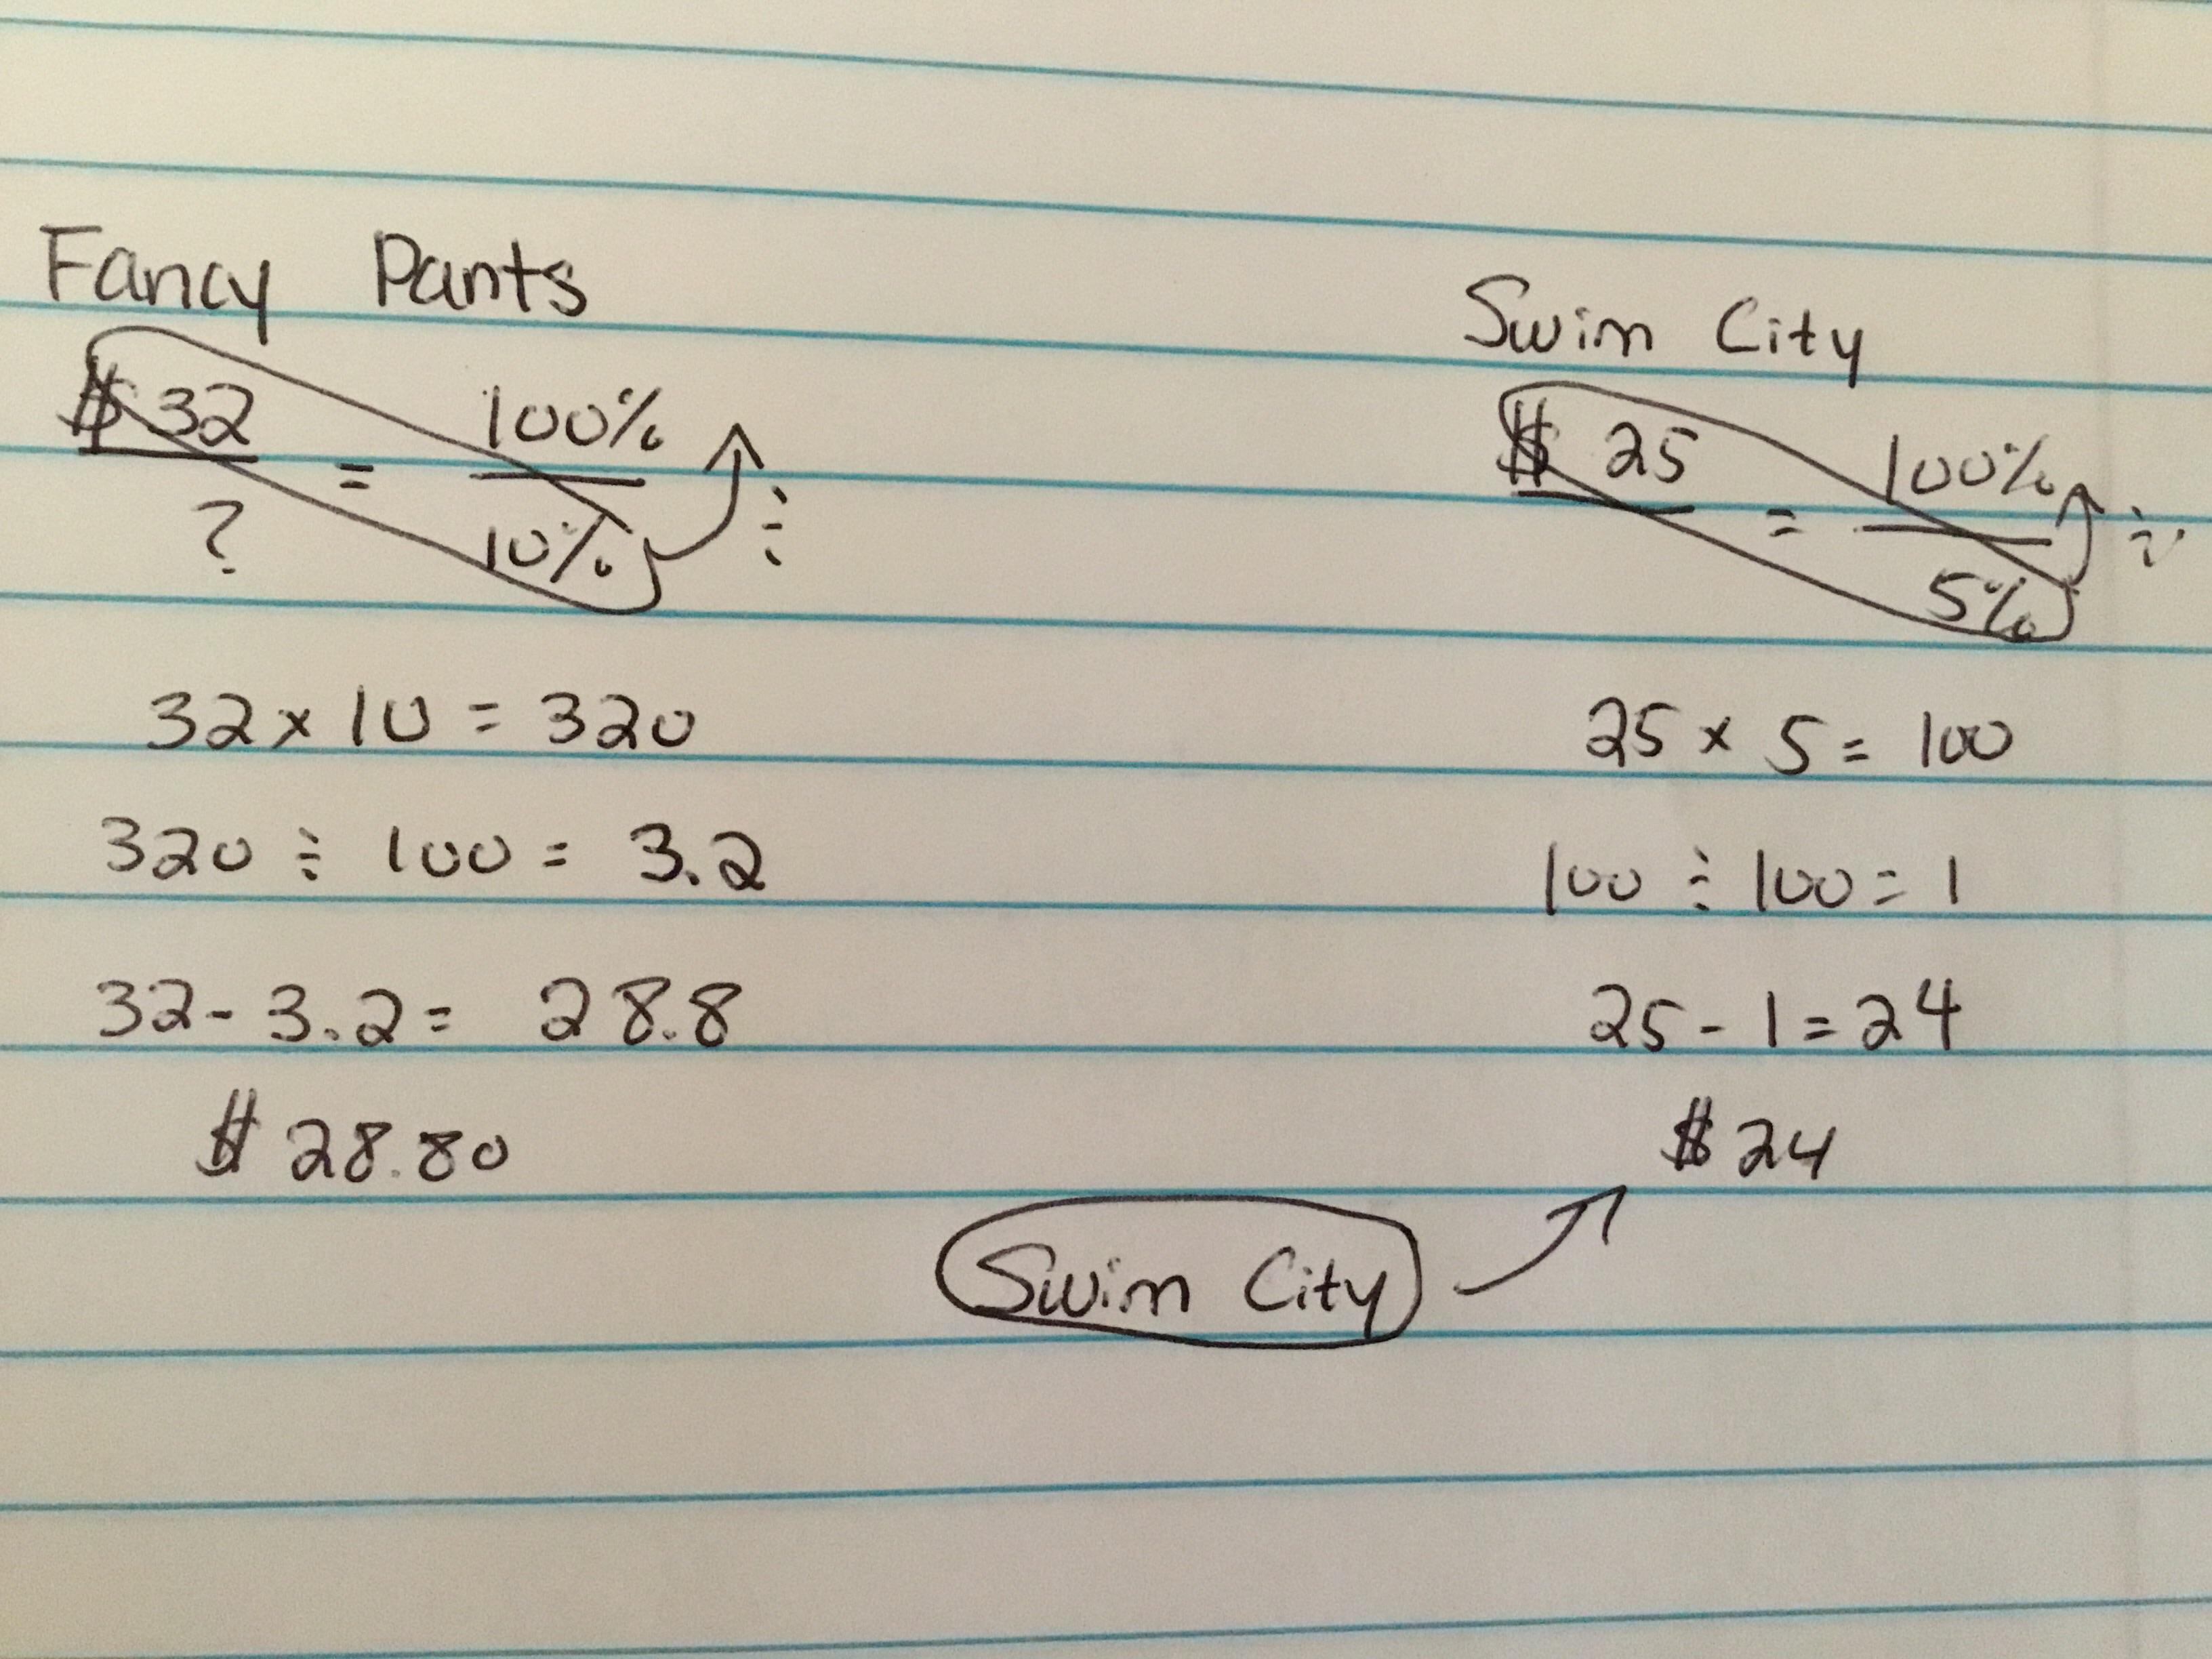 Fancy Pants
$32 = 100%
? 10% ÷
32 x 10 = 320
320 ÷ 100 = 3.2
32 - 3.2 = 28.8
$28.80
Swim City
$25 = 100%
5% ÷
25 x 5 = 100
100 ÷ 100 = 1
25 - 1 = 24
$24
Swim City